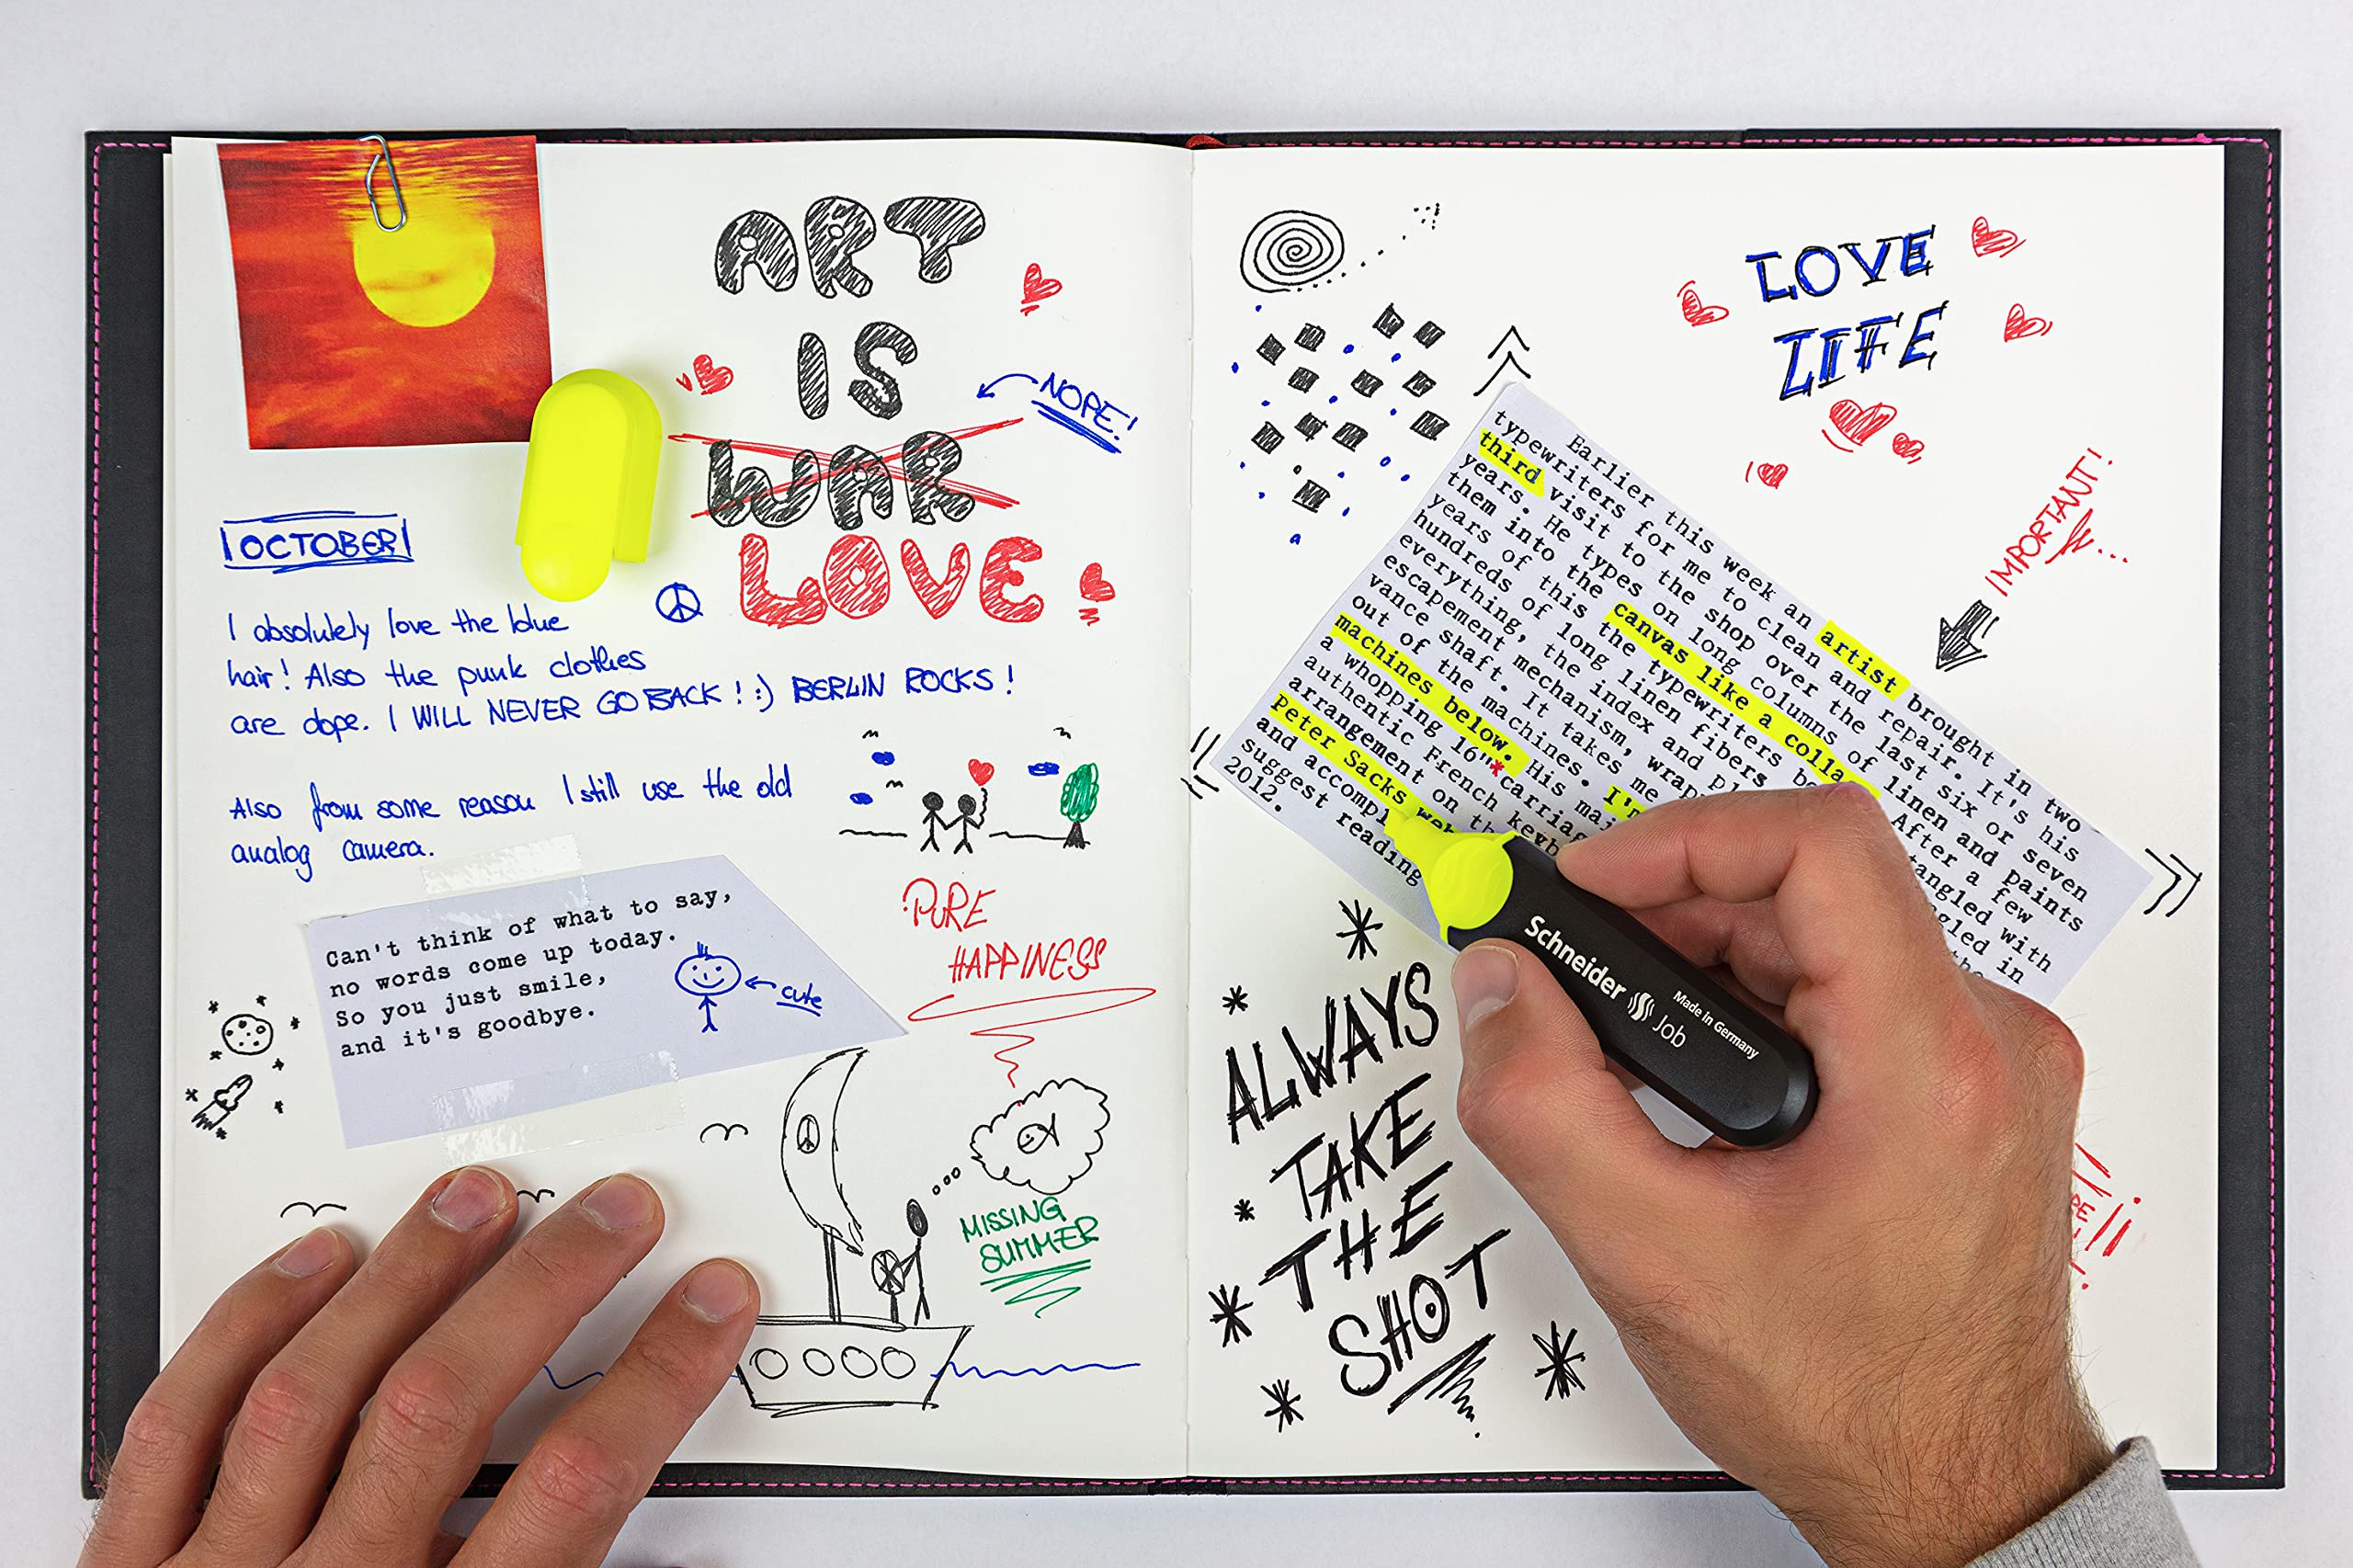 ART
IS
WAR
LOVE
NOPE!
OCTOBER
I absolutely love the blue
hair! Also the punk clothes
are dope. I WILL NEVER GO BACK! :) BERLIN ROCKS!
Also from some reason I still use the old
analog camera.
Can't think of what to say,
no words come up today.
So you just smile,
and it's goodbye.
cute
PURE
HAPPINESS
MISSING
SUMMER
LOVE
LIFE
IMPORTANT!
Earlier this week an artist brought in two
typewriters for me to clean and repair. It's his
third visit to the shop over the last six or seven
years. He types on long columns of linen and paints
them into the canvas like a colla After a few
years of this the typewriters be tangled with
hundreds of long linen fibers in
everything, the index and
escapement mechanism, wrap
vance shaft. It takes me
out of the machines. I'm
machines below. His
a whopping 16"* carriag
authentic French keyb
arrangement on
Peter Sacks web
and accompl
suggest reading
2012.
Schneider Job
Made in Germany
ALWAYS
TAKE
THE
SHOT